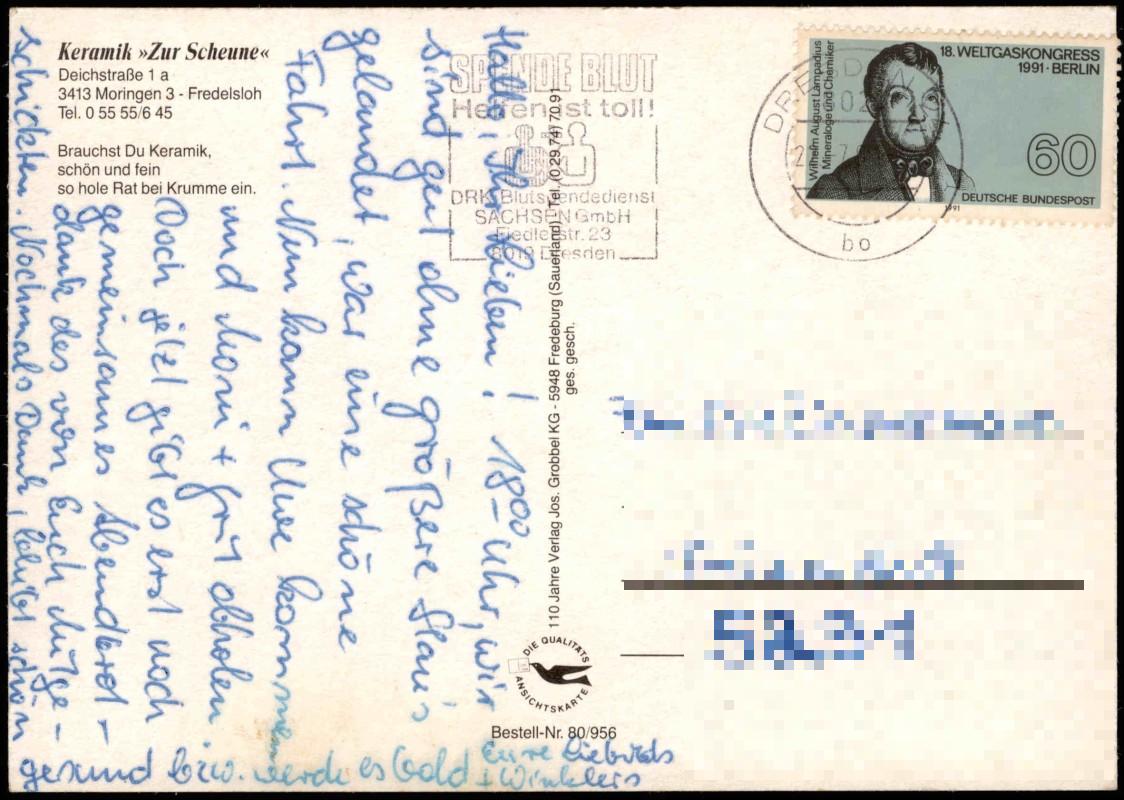 Keramik »Zur Scheune«
Deichstraße 1 a
3413 Moringen 3 - Fredelsloh
Tel. 0 55 55/6 45
Brauchst Du Keramik,
schön und fein
so hole Rat bei Krumme ein.
Hallo, Ihr Lieben! 18⁰⁰ Uhr, wir
sind gut ohne größere Stau's
gelandet, war eine schöne
Fahrt. Nun kann Uwe kommen
und + abholen
Doch jetzt gibt es erst noch
gemeinsames Abendbrot -
dank des von Euch mitge-
schickten. Nochmals Dank, bleibt schön
gesund bzw. werdet es bald
Eure Liebvids
+ Winklers
SPENDE BLUT
Helfen ist toll!
DRK-Blutspendedienst
SACHSEN GmbH
Fiedlerstr. 23
8019 Dresden
110 Jahre Verlag Jos. Grobbel KG - 5948 Fredeburg (Sauerland) - Tel. (0 29 74) 70 91
ges. gesch.
DIE QUALITÄTS
ANSICHTSKARTE
Bestell-Nr. 80/956
DRESDEN
bo
18. WELTGASKONGRESS
1991·BERLIN
Wilhelm August Lampadius
Mineraloge und Chemiker
60
DEUTSCHE BUNDESPOST
1991
5231